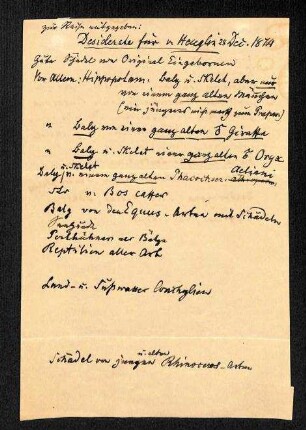 zur Reise mitgegeben:
Desiderate für v Heuglin 23 Dec. 1874
Gute Schädel von Original Eingebornen
Vor Allem: Hippopotam. Balg u. Skelet, aber nur
von einem ganz alten Männchen
(ein jüngeres nicht
" Balg von einem ganz alten ♂ Giraffe
" Balg u. Skelet eines ganz alten ♂ Oryx
u Skelet
Balg v. einem ganz alten Phacochoer. Aeliani
Str v. Bos caffer
Balg von den Equus-Arten mit Schädeln
Perlhühner
Reptilien aller Art
Land- u. Süßwasser Conchylien
u alten
Schädel von jungen Rhinoceros-Arten